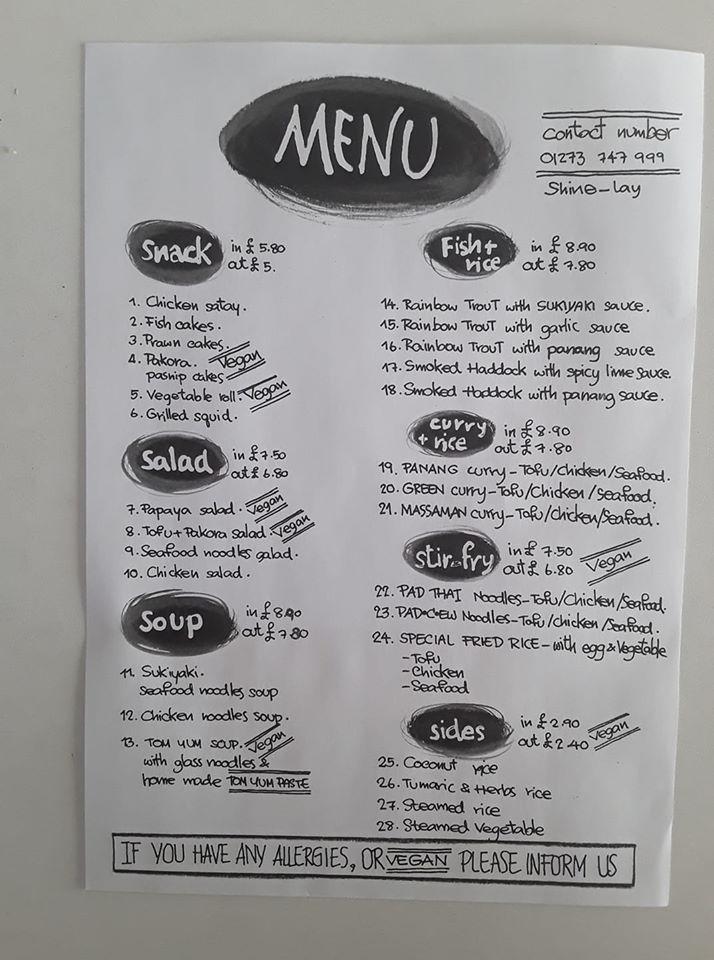 MENU
contact number
01273 747 999
Shine-Lay
Snack in £ 5.80
out £ 5.
1. Chicken satay.
2. Fish cakes.
3. Prawn cakes.
4. Pakora. Vegan
pasnip cakes
5. Vegetable roll. Vegan
6. Grilled squid.
Salad in £ 7.50
out £ 6.80
7. Papaya salad. Vegan
8. Tofu + Pakora salad. Vegan
9. Seafood noodles salad.
10. Chicken salad.
Soup in £ 8.90
out £ 7.80
11. Sukiyaki.
seafood noodles soup
12. Chicken noodles soup.
13. TOM YUM SOUP. Vegan
with glass noodles &
home made TOM YUM PASTE
Fish + rice in £ 8.90
out £ 7.80
14. Rainbow TrouT with SUKIYAKI sauce.
15. Rainbow TrouT with garlic sauce
16. Rainbow TrouT with panang sauce
17. Smoked Haddock with spicy lime sauce.
18. Smoked Haddock with panang sauce.
curry + rice in £ 8.90
out £ 7.80
19. PANANG curry-Tofu/Chicken/Seafood.
20. GREEN curry-Tofu/Chicken/Seafood.
21. MASSAMAN curry-Tofu/Chicken/Seafood.
stir-fry in £ 7.50 Vegan
out £ 6.80
22. PAD THAI Noodles-Tofu/Chicken/Seafood.
23. PAD•C•EW Noodles-Tofu/Chicken/Seafood.
24. SPECIAL FRIED RICE - with egg & Vegetable
-Tofu
-Chicken
-Seafood
sides in £ 2.90 Vegan
out £ 2.40
25. Coconut rice
26. Tumaric & Herbs rice
27. Steamed rice
28. Steamed Vegetable
IF YOU HAVE ANY ALLERGIES, OR VEGAN PLEASE INFORM US